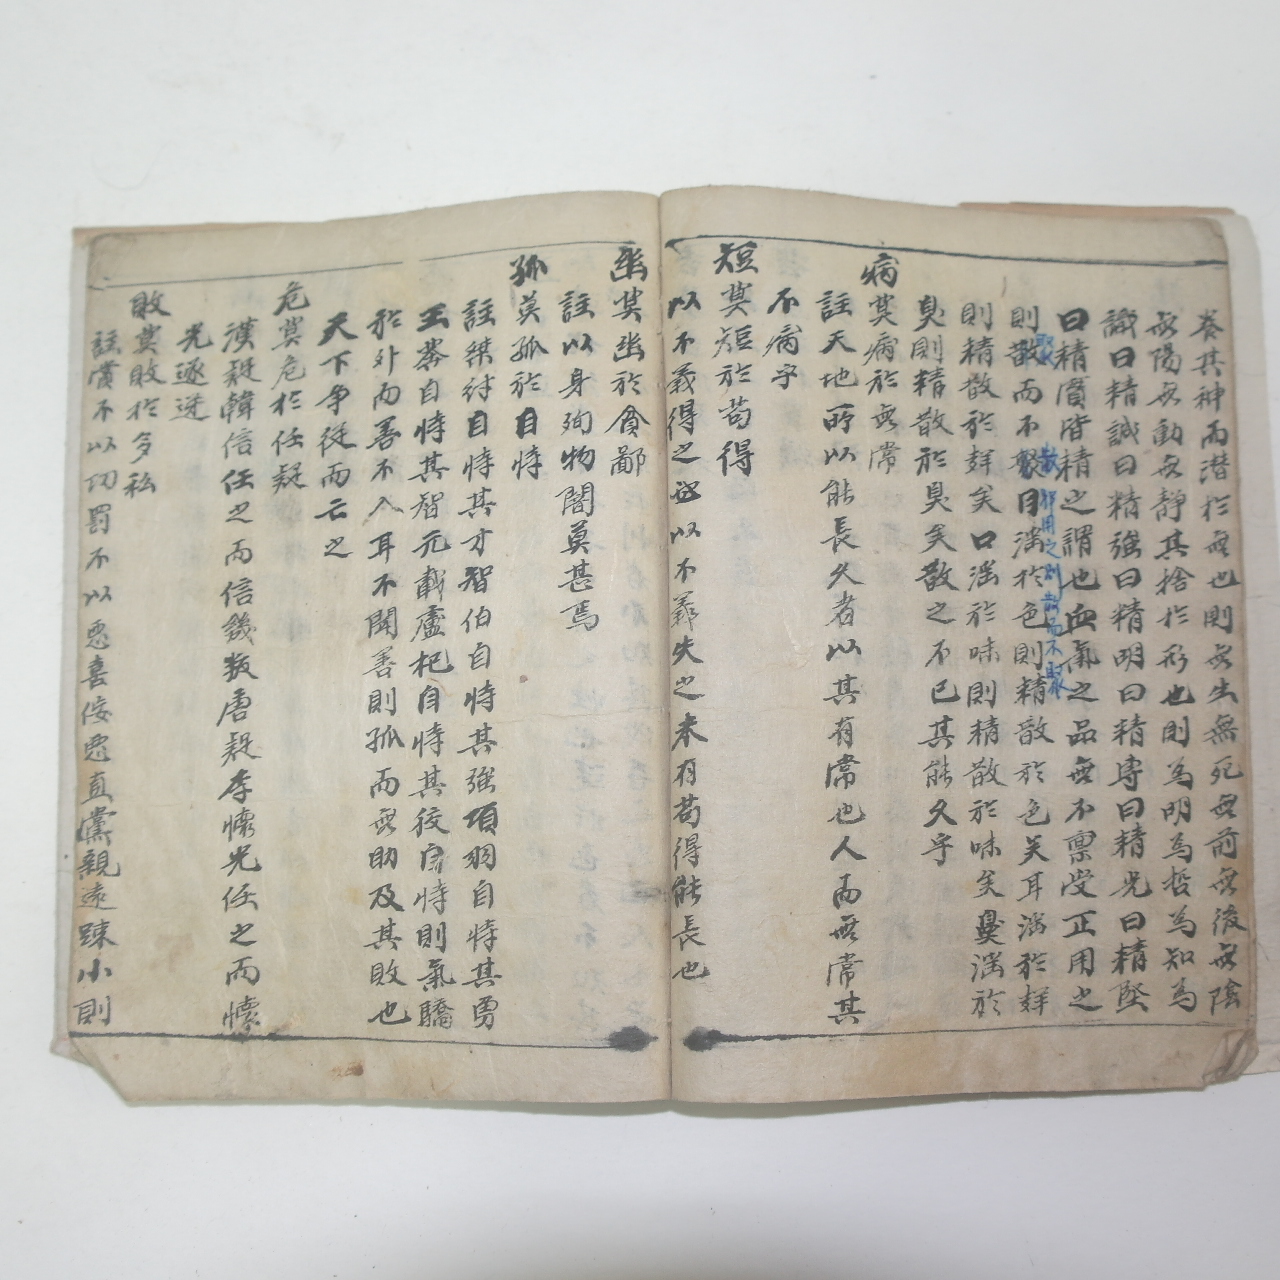 養其神而潜於無也則無生無死無前無後無陰
無陽無動無靜其捨於形也則為明為哲為知為
識曰精誠曰精強曰精明曰精專曰精光曰精堅
曰精實皆精之謂也血氣之品無不禀受正用之
則散而不聚目滛於色則精散於色矣耳滛於
則精散於 矣口滛於味則精散於味矣鼻滛於
臭則精散於臭矣散之不已其能久乎
病莫病於無常
註天地所以能長久者以其有常也人而無常其
不病乎
短莫短於苟得
以不義得之必以不義失之未有苟得能長也
幽莫幽於貪鄙
註以身殉物闇莫甚焉
孤莫孤於自恃
註桀紂自恃其才智伯自恃其強項羽自恃其勇
王莽自恃其智元載盧杞自恃其狡自恃則氣驕
於外而善不入耳不聞善則孤而無助及其敗也
天下争從而亡之
危莫危於任疑
漢疑韓信任之而信幾叛唐疑李懷光任之而懷
光逐迸
敗莫敗於多私
註賞不以功罰不以惡喜佞惡直黨親遠踈小則
聚
散
邪用之則散而不聚